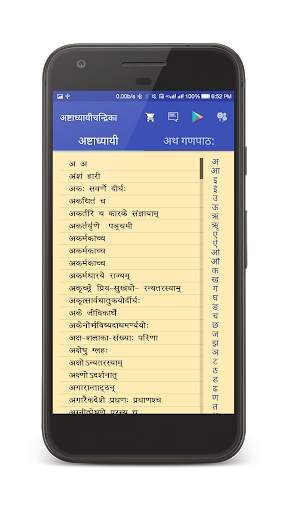 0.00b/s 100% 6:52 PM
अष्टाध्यायीचन्द्रिका
अष्टाध्यायी
अथ गणपाठ:
अ अ
अंशं हारी
अकः सवर्णे दीर्घः
अकथितं च
अकर्तरि च कारके संज्ञायाम्
अकर्तर्यृणे पञ्चमी
अकर्मकाच्च
अकर्मकाच्च
अकर्मकाच्च
अकर्मधारये राज्यम्
अकृच्छ्रे प्रिय-सुखयो- रन्यतरस्याम्
अकृत्सार्वधातुकयोर्दीर्घः
अके जीविकार्थे
अकेनोर्भविष्यदाधमर्ण्ययोः
अक्ष-शलाका-संख्याः परिणा
अक्षेषु ग्लहः
अक्षोऽन्यतरस्याम्
अक्ष्णोऽदर्शनात्
अगारान्ताट्ठन्
अगारैकदेशे प्रघणः प्रघाणश्च
अ
आ
इ
ई
उ
ऊ
ऋ
ॠ
ए
ऐ
ओ
औ
क
ख
ग
घ
ङ
च
छ
ज
झ
ञ
ट
ठ
ड
ढ
ण
त